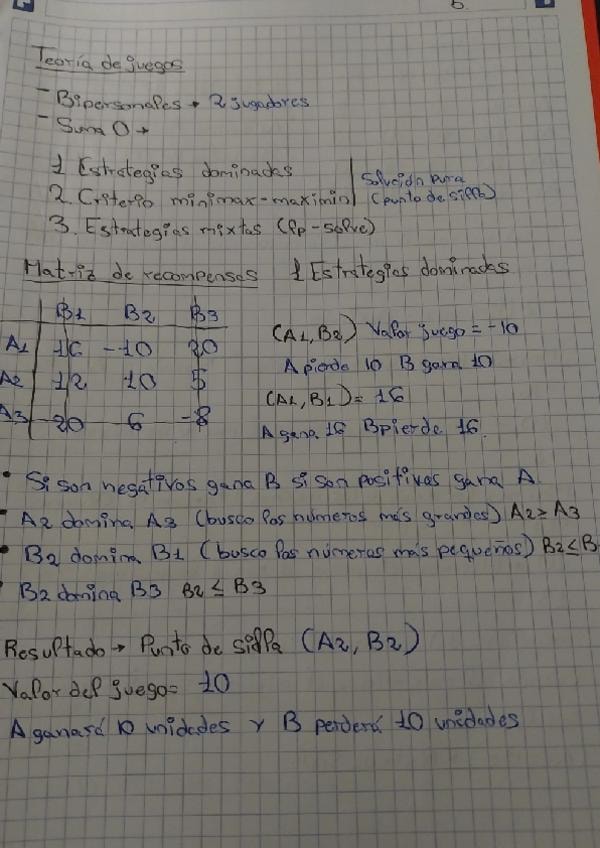 Teoría de juegos
- Bipersonales → 2 jugadores
- Suma 0 →
1 Estrategias dominadas
2. Criterio minimax-maximin
Solución pura
(punto de silla)
3. Estrategias mixtas (lp-solve)
Matriz de recompensas 1 Estrategias dominadas
B1 B2 B3
A1 16 -10 20
A2 12 10 5
A3 20 6 -8
(A1, B2) Valor juego = -10
A pierde 10 B gana 10
(A1, B1) = 16
A gana 16 B pierde 16
• Si son negativos gana B si son positivos gana A
- A2 domina A3 (busco los números más grandes) A2 ≥ A3
• B2 domina B1 (busco los números más pequeños) B2 ≤ B
B2 domina B3 B2 ≤ B3
Resultado → Punto de silla (A2, B2)
Valor del juego = 10
A ganará 10 unidades y B perderá 10 unidades